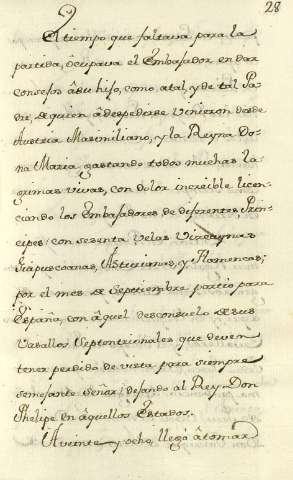 28
El tiempo que faltava para la
partida, ôcupava el Embaxador en dar
consejos â su hijo, como atal, y de tal Pa
dre, de quien â despedirse vinieron desde
Austria Maximiliano, y la Reyna Do-
ña Maria gastando todos muchas la-
grimas vivas, con dolor increible licen-
ciando los Embaxadores de diferentes Prin-
cipes: con sesenta velas Vizcaynas
Guipuscoanas, Asturianas, y Flamencas;
por el mes de Septiembre partio para
España, con âquel desconsuelo de sus
Vasallos Septentrionales que deven
tener perdido de vista para siempre
semejante Señor; dejando al Rey Don
Phelipe en âquellos Estados.
A veinte y ocho, llegô â tomar